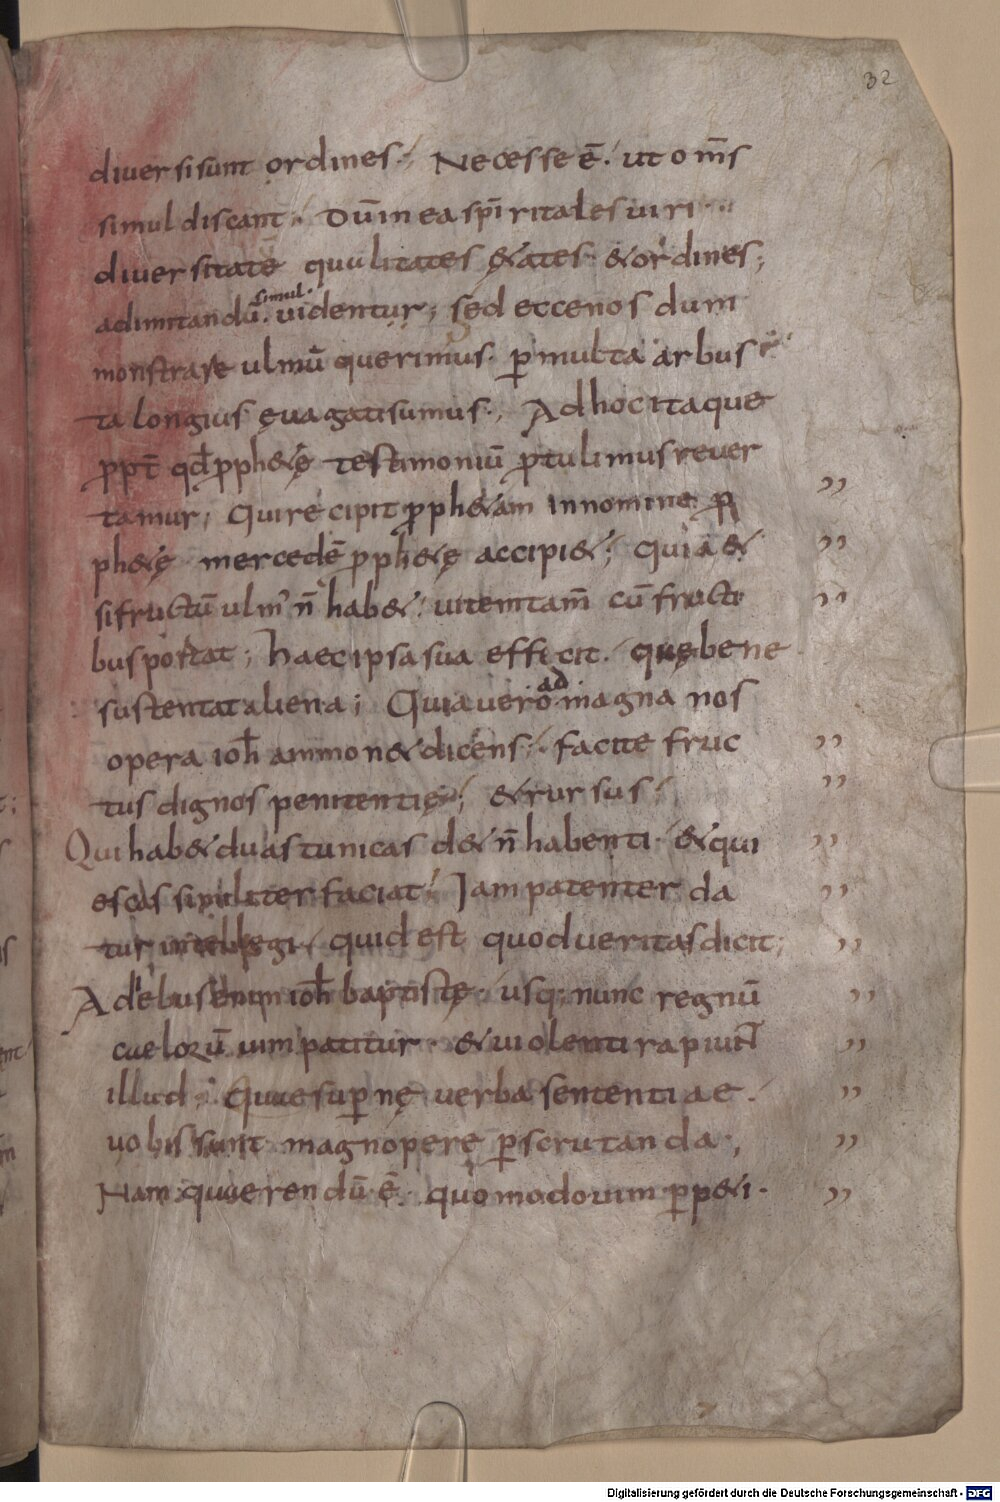 32
diuersi sunt ordines. Necesse ē. ut om̄s
simul discant. Dūm ea spīritales uiri
diuersitatē qualitates &ates & ordines;
simul.
ad imitandū. uidentur; sed ecce nos dum
monstrare ulmū querimus. ꝑ multa arbus
ta longius euagati sumus., Ad hoc itaque
ꝓpt̄ qđ ꝓph&ę testimoniū ꝓtulimus reuer
tamur; Qui recipit ꝓph&am in nomine ꝓ
ph&ę mercedē ꝓph&ę accipi&; quia &
si fructū ulm' n̄ hab&. uitem tam̄ cū fructi
bus portat; haec ipsa sua efficit. quę bene
ad
sustentat aliena; Quia uero magna nos
opera ioh̄ ammon& dicens. facite fruc
tus dignos penitentię; & rursus
Qui hab& duas tunicas d& n̄ habenti. & qui
escas similiter faciat. Iam patenter da
tur intellegi. quid est quod ueritas dicit;
A diebus enim ioh̄ baptistę. usq; nunc regnū
caelorū uim patitur. & uiolenti rapiunt
illud; Quae suꝑnę uerba sententiae.
uobis sunt magnopere ꝑscrutanda.,
Nam quaerendū ē. quomodo uim ꝑp&i.
Digitalisierung gefördert durch die Deutsche Forschungsgemeinschaft - DFG